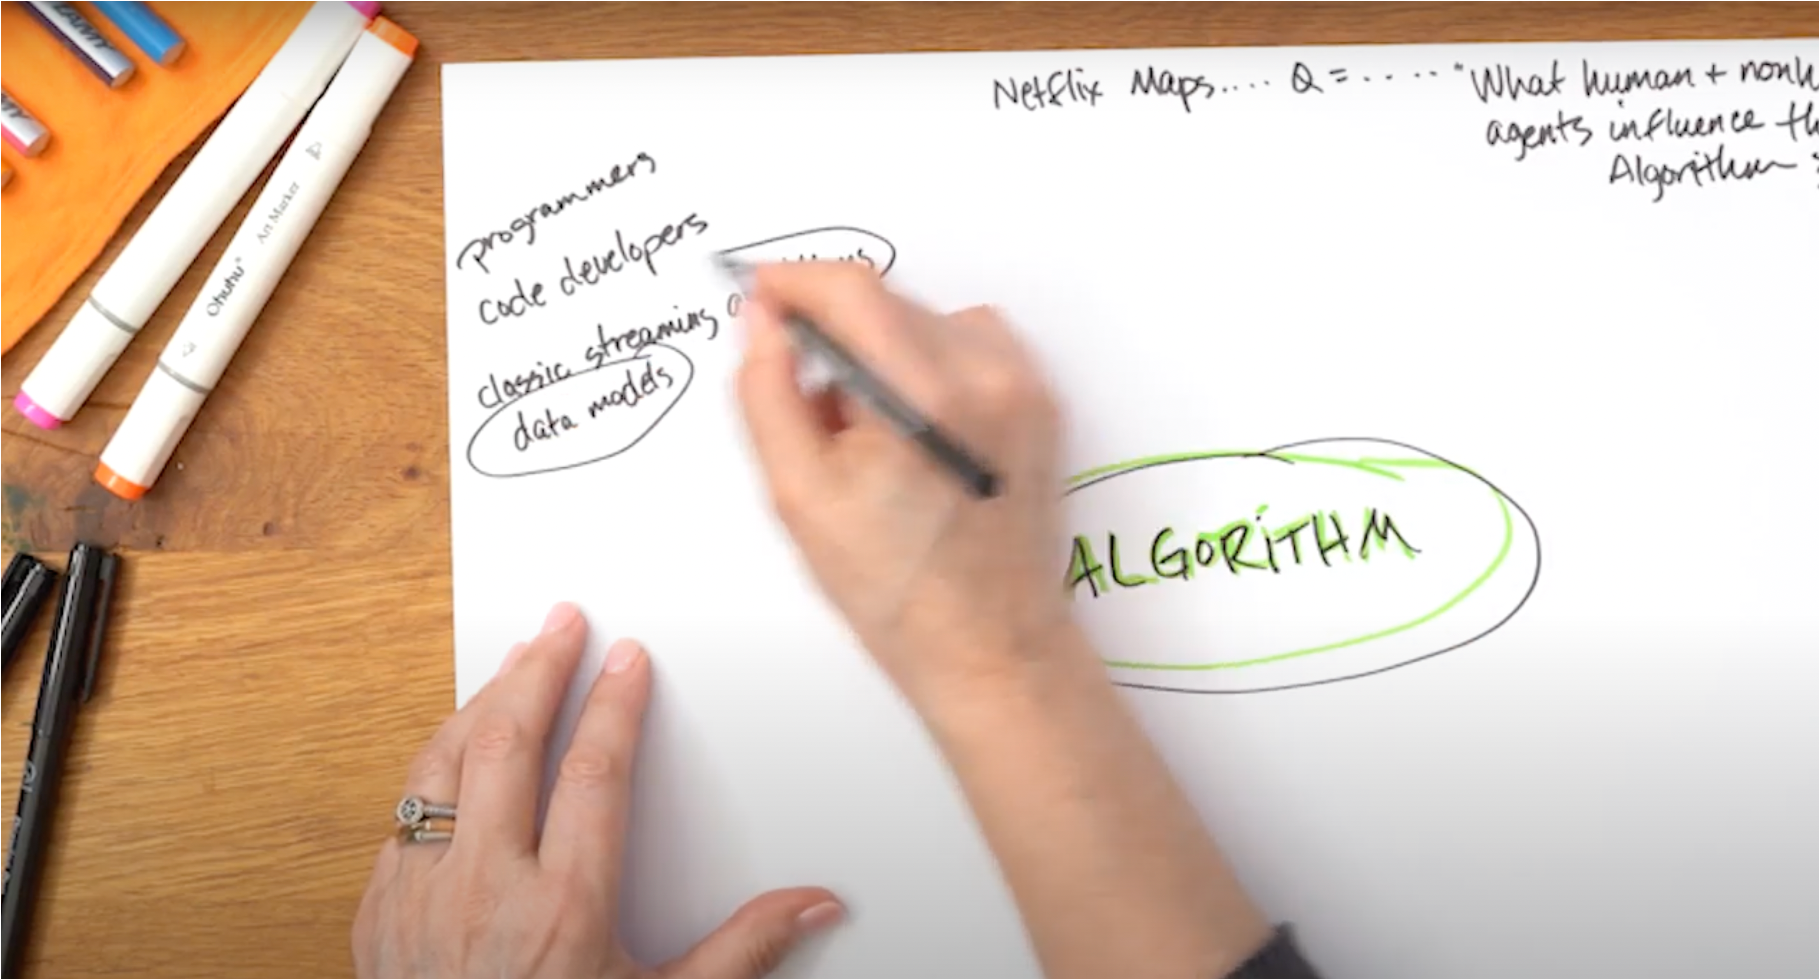 LAMY
Netflix Maps.... Q = ..... "What human + nonh
agents influence th
Algorithm
programmers
code developers
classic streaming
data models
ALGORiTHM
Ohuhu Art Marker